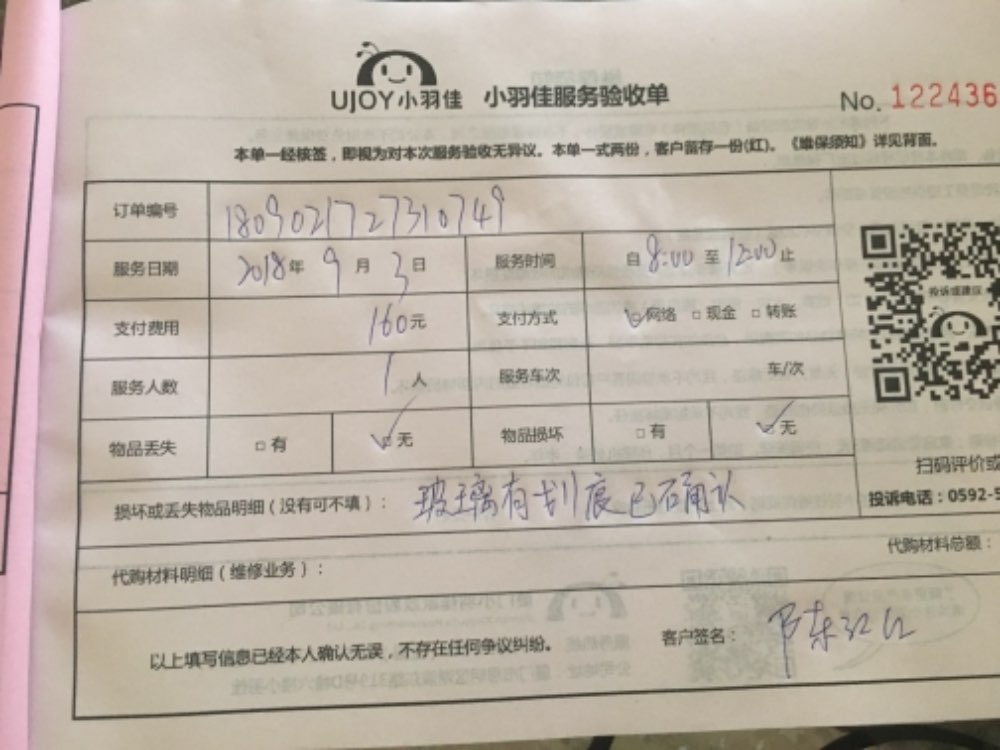 UJOY小羽佳 小羽佳服务验收单
No. 122436
本单一经核签，即视为对本次服务验收无异议。本单一式两份，客户留存一份(红)。《维保须知》详见背面。
订单编号 1809021727310749
服务日期 2018年 9月 3日 服务时间 自 8:00 至 12:00 止
支付费用 160元 支付方式 ☑网络 □现金 □转账
投诉或建议
服务人数 1人 服务车次 车/次
物品丢失 □有 ☑无 物品损坏 □有 ☑无
扫码评价或
损坏或丢失物品明细（没有可不填）： 玻璃有划痕已确认
投诉电话：0592-5
代购材料明细（维修业务）：
代购材料总额：
以上填写信息已经本人确认无误，不存在任何争议纠纷。
客户签名：